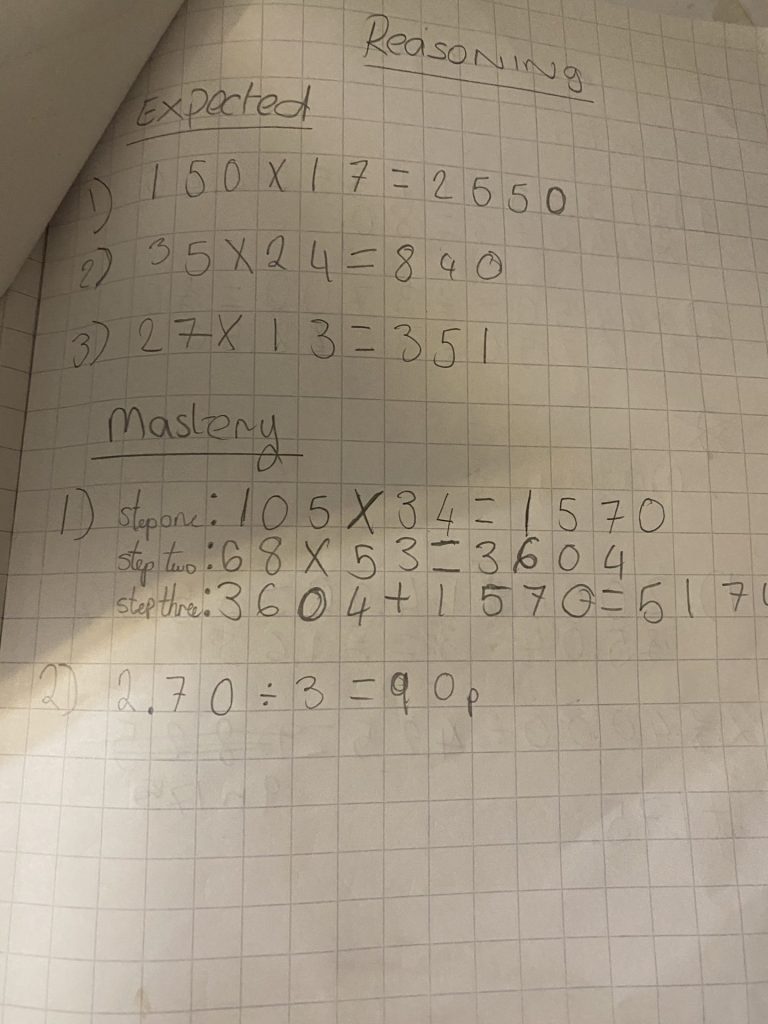 Reasoning
Expected
1) 150 x 17 = 2550
2) 35 x 24 = 840
3) 27 x 13 = 351
Mastery
1) step one: 105 x 34 = 1570
step two: 68 x 53 = 3604
step three: 3604 + 1570 = 517
2) 2.70 ÷ 3 = 90p